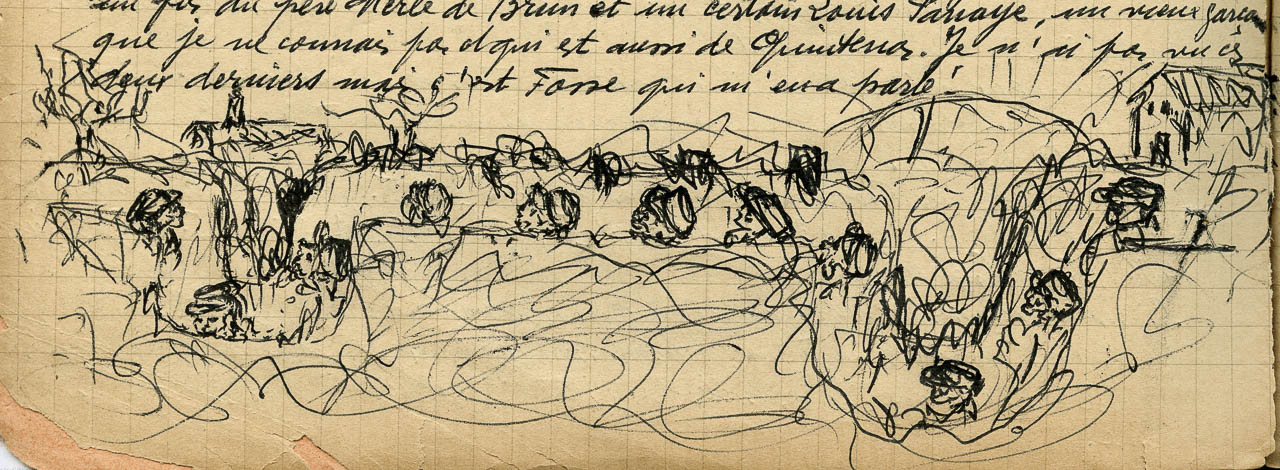 un fils du père Merle de Brun et un certain Louis , un vieux garçon
que je ne connais pas et qui est aussi de Quintenas. Je n'ai pas vu ces
deux derniers mais c'est Fosse qui m'en a parlé.